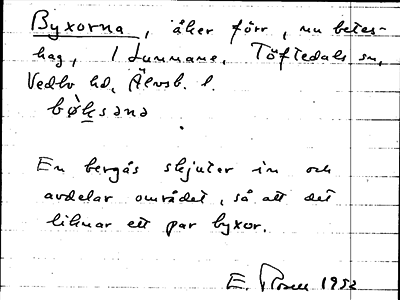 Byxorna, åker förr, nu betes-
hag, i Lunnane, Töftedals sn,
Vedbo hd, Älvsb. l.
bø̀ksənə
En bergås skjuter in och
avdelar området, så att det
liknar ett par byxor.
E. Rosell 1952